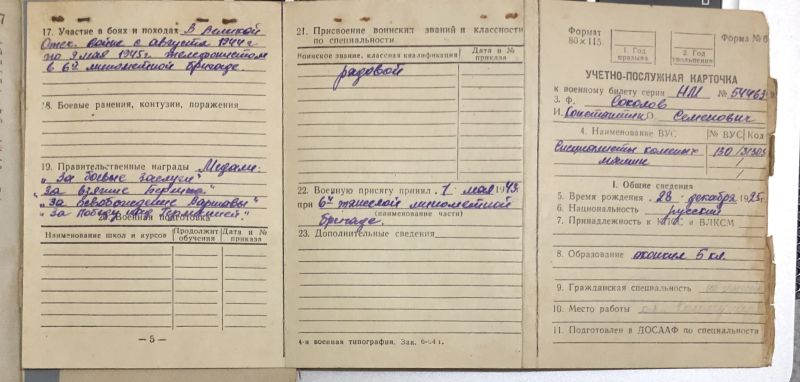 17. Участие в боях и походах В Великой
Отеч. войне с августа 1944 г
по 9 мая 1945г. телефонистом
в 6й минометной бригаде.
18. Боевые ранения, контузии, поражения
19. Правительственные награды Медали:
"За боевые заслуги"
"За взятие Берлина"
"За освобождение Варшавы"
"За победу над Германией"
20. Военная подготовка
Наименование школ и курсов
Продолжит обучения
Дата и № приказа
— 5 —
21. Присвоение воинских званий и классности
по специальности
Воинское звание, классная квалификация
Дата и № приказа
рядовой
22. Военную присягу принял 1 мая 1945
при 6й тяжелой минометной
(наименование части)
бригаде.
23. Дополнительные сведения
4-я военная типография. Зак.
Формат
80×115
Форма № 6
1. Год призыва
2. Год увольнения
УЧЕТНО-ПОСЛУЖНАЯ КАРТОЧКА
к военному билету серии НМ №
3. Ф. Соколов
И. Константин О. Семенович
4. Наименование ВУС
№ ВУС
Код
Специалисты
машин
130
I. Общие сведения
5. Время рождения 28 декабря 1925 г.
6. Национальность русский
7. Принадлежность к КПСС и ВЛКСМ
8. Образование окончил 5 кл.
9. Гражданская специальность
10. Место работы
11. Подготовлен в ДОСААФ по специальности